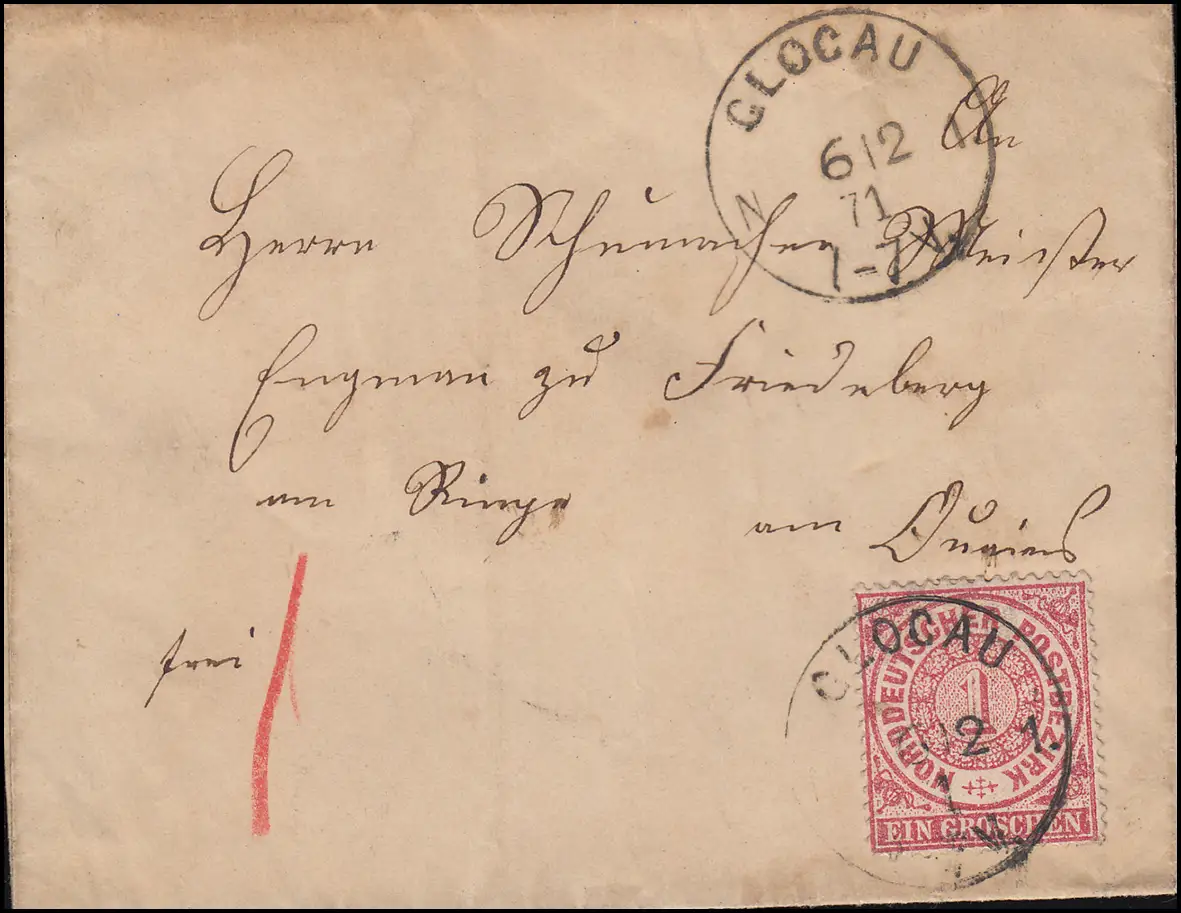 GLOGAU
6 12
71
An
Herrn Schumacher Meister
Engman zu Friedeberg
am Ringe am Queis
frei
1
GLOGAU
12 1.
NORDDEUTSCHER POSTBEZIRK
1
EIN GROSCHEN